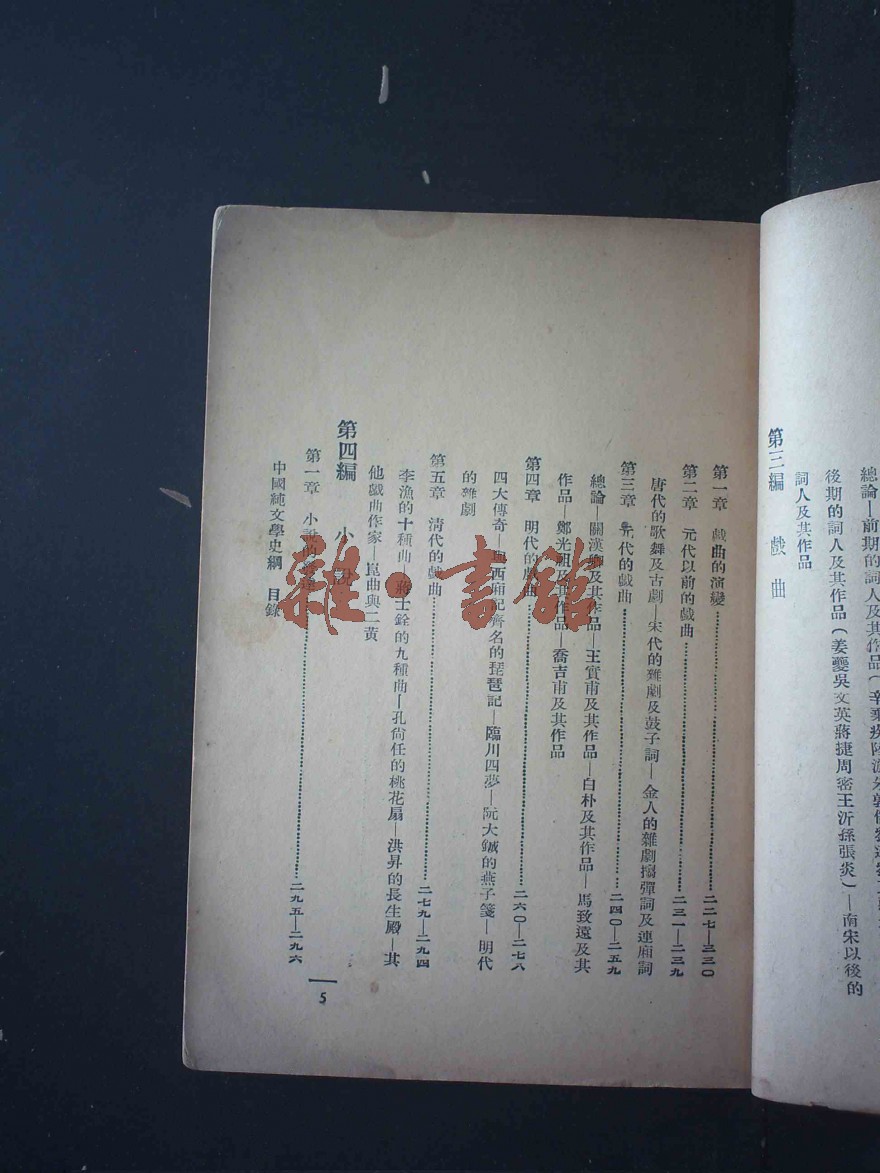 總論—前期的詞人及其作品(辛棄疾陸游
後期的詞人及其作品(姜夔吳文英蔣捷周密王沂孫張炎)—南宋以後的
詞人及其作品
第三編 戲曲
第一章 戲曲的演變…………二二七—二三〇
第二章 元代以前的戲曲…………二三一—二三九
唐代的歌舞及古劇—宋代的雜劇及鼓子詞—金人的雜劇搊彈詞及連廂詞
第三章 元代的戲曲…………二四〇—二五九
總論—關漢卿及其作品—王實甫及其作品—白朴及其作品—馬致遠及其
作品—鄭光祖及其作品—喬吉甫及其作品
第四章 明代的戲曲…………二六〇—二七八
四大傳奇—與西廂記齊名的琵琶記—臨川四夢—阮大鋮的燕子箋—明代
的雜劇
第五章 清代的戲曲…………二七九—二九四
李漁的十種曲—蔣士銓的九種曲—孔尚任的桃花扇—洪昇的長生殿—其
他戲曲作家—崑曲與二黃
第四編 小說
第一章 小說的…………二九五—二九六
中國純文學史綱 目錄
5
雜·書館